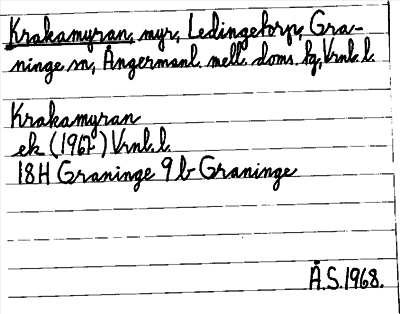 Krakamyran, myr, Ledingetorp, Gra-
ninge sn, Ångermanl. mell. doms. hg, Vrnl. l.
Krakamyran
ek (1967) Vrnl. l.
18H Graninge 9b Graninge
Å.S. 1968.